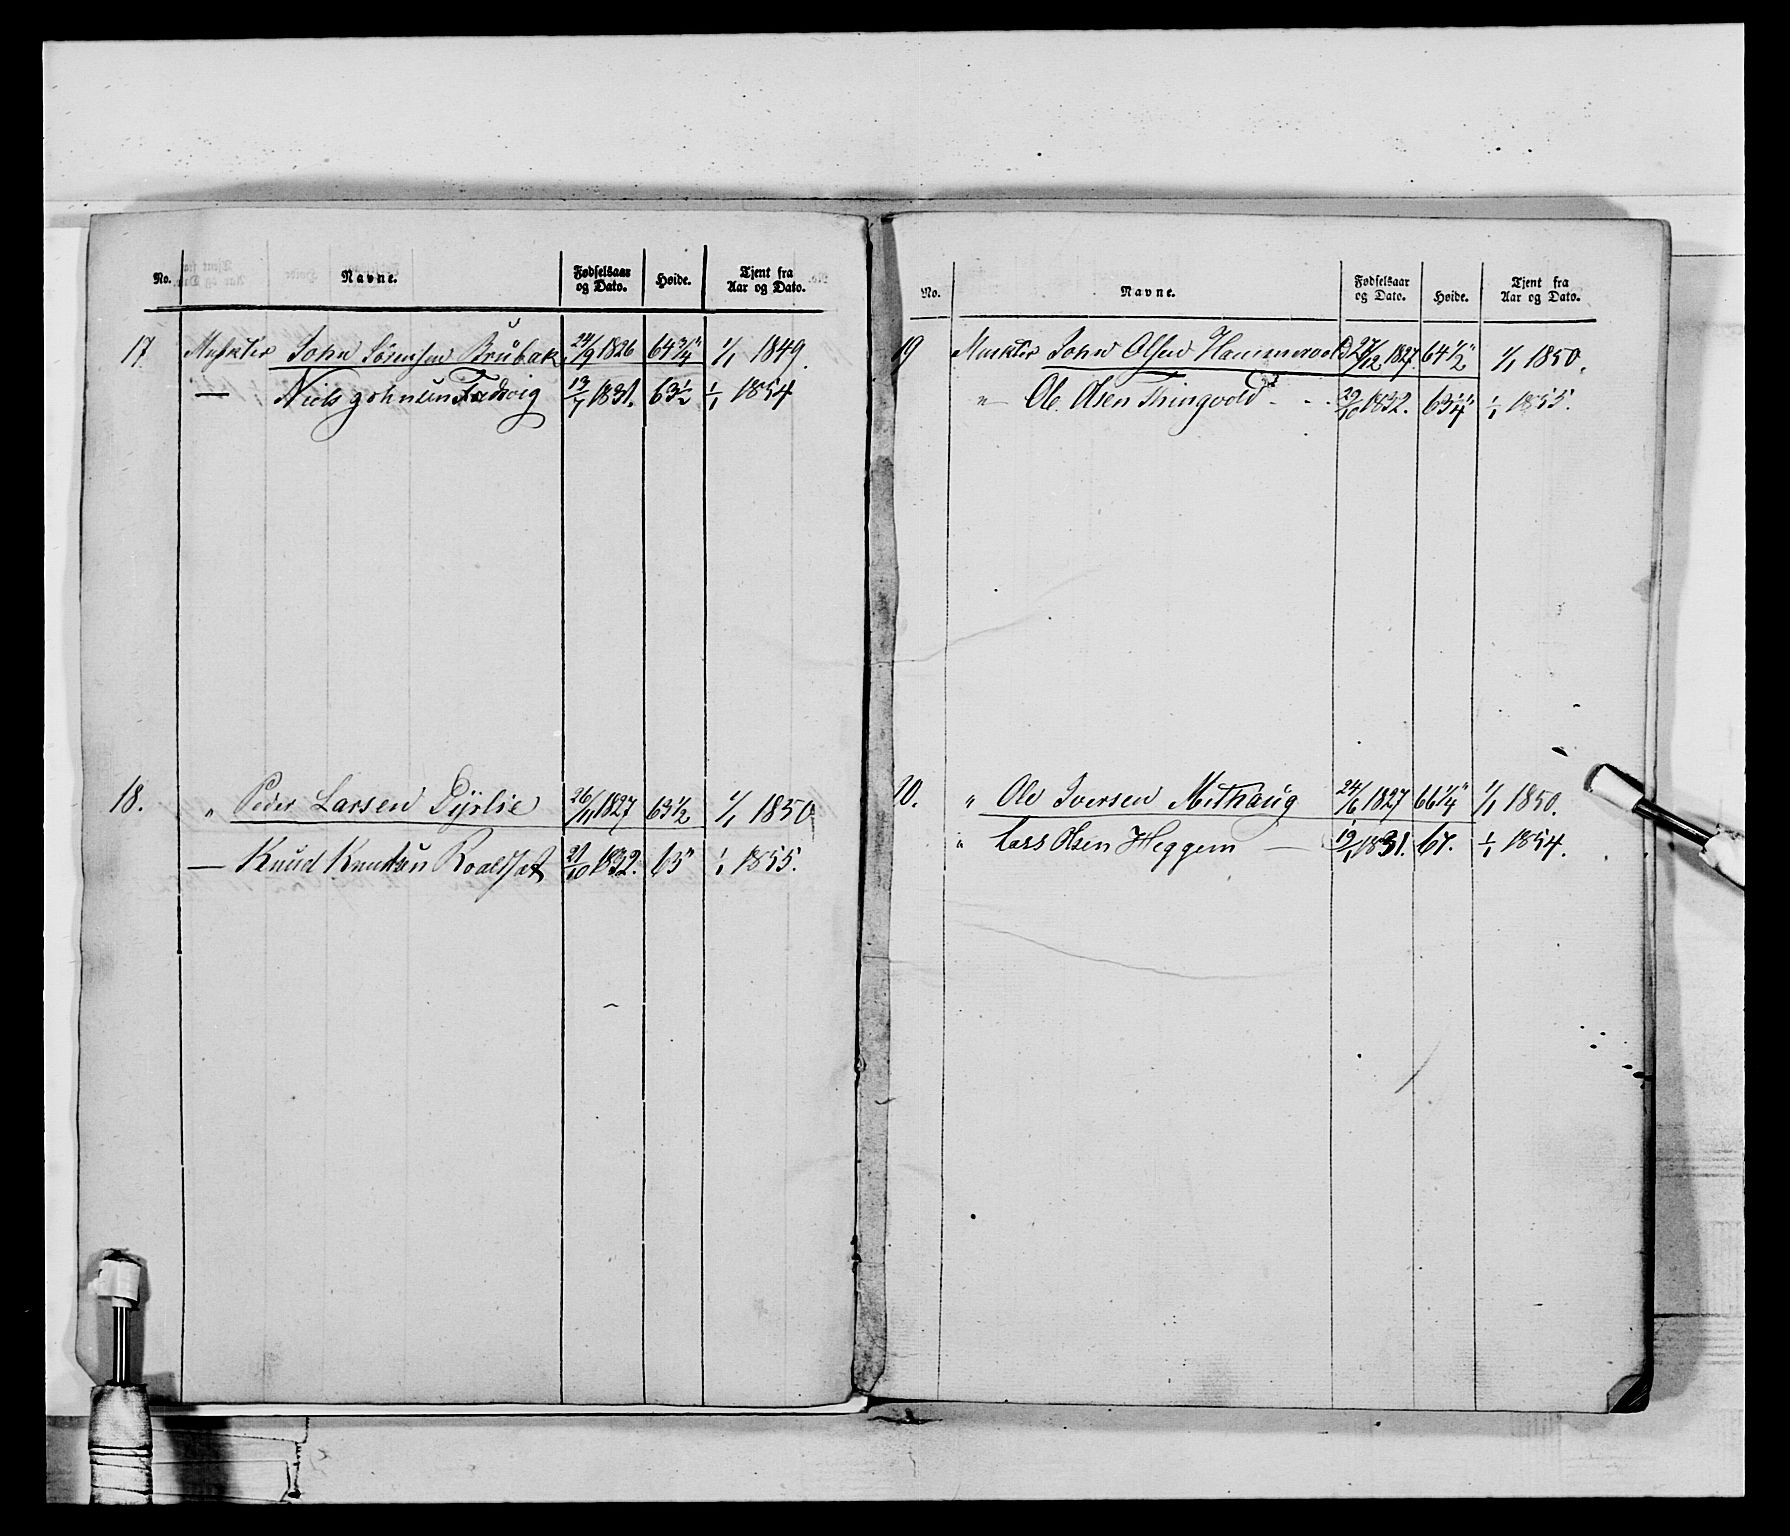 No. Navne. Fødselsaar og Dato. Høide. Tjent fra Aar og Dato.
17. Muskter John Sørensen Brubak 24/9 1826 64 3/4" 1/1 1849.
— Niels Johnsen Fredvig 13/7 1831. 63 1/2 1/1 1854
18. " Peder Larsen Dyrlie 26/11 1827 63 1/2 1/1 1850
— Knud Knudsen Roaldset 21/10 1832. 65" 1/1 1855.
No. Navne. Fødselsaar og Dato. Høide. Tjent fra Aar og Dato.
19 Muskter John Olsen Hammervold 27/12 1827. 64 1/2" 1/1 1850.
" Ole Olsen Thingvold 29/10 1832. 63 1/4" 1/1 1855.
20. " Ole Iversen Mithaug 24/6 1827 66 1/4" 1/1 1850.
" Lars Olsen Heggem — 19/1 1831. 67. 1/1 1854.